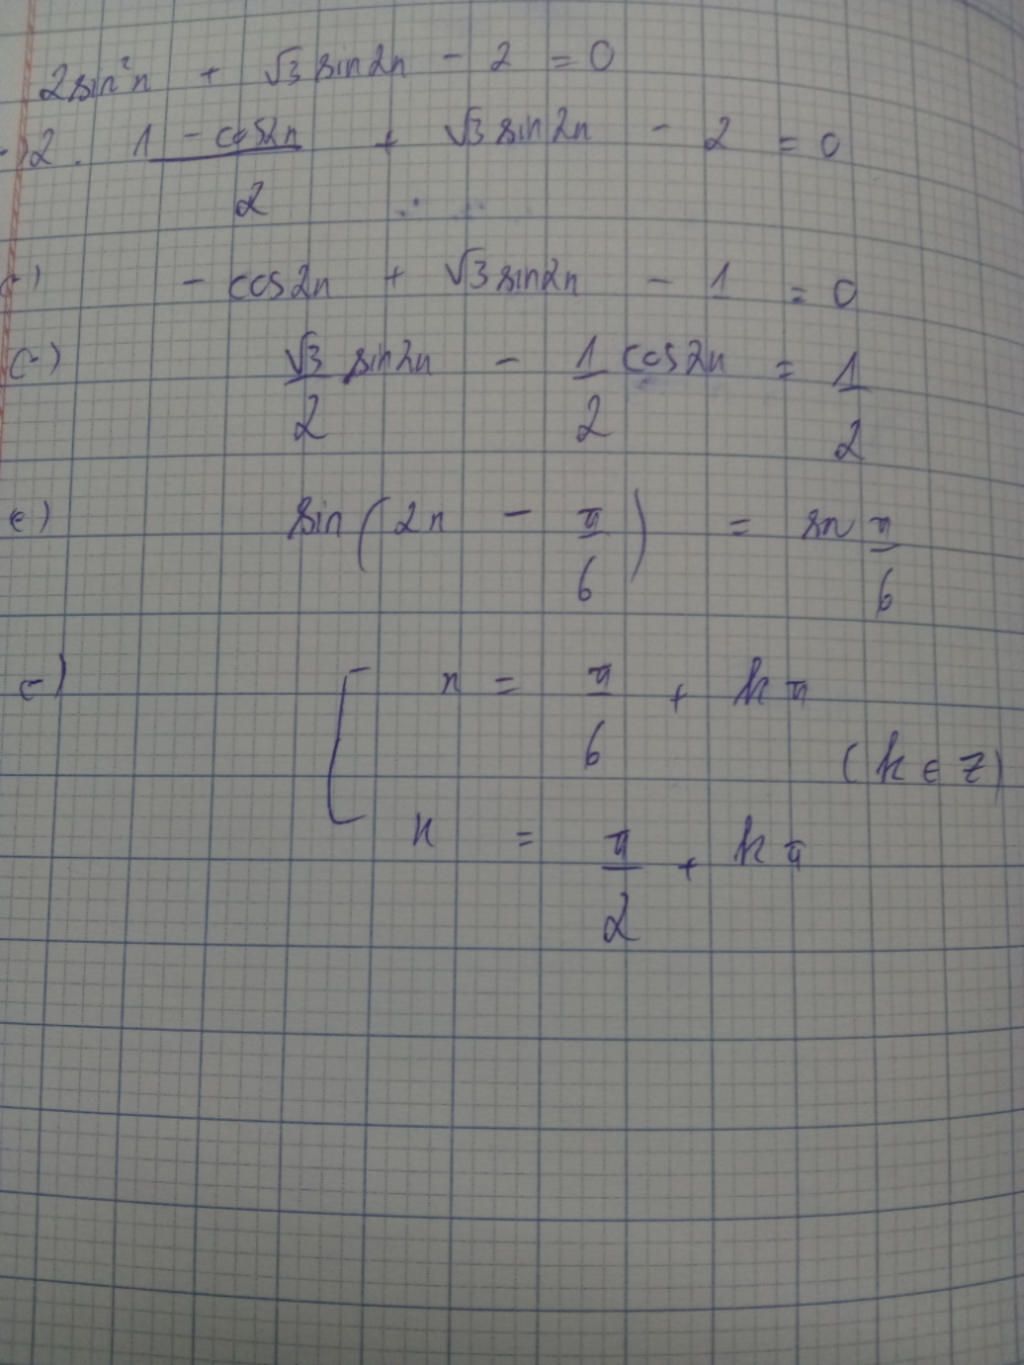 2sin²x + √3 sin2x - 2 = 0
(=) 2 . (1 - cos2x)/2 + √3 sin2x - 2 = 0
(=) - cos2x + √3 sin2x - 1 = 0
(=) √3/2 sin2x - 1/2 cos2x = 1/2
(=) sin(2x - π/6) = sin π/6
(=) [ x = π/6 + kπ
(k ∈ Z)
x = π/2 + kπ